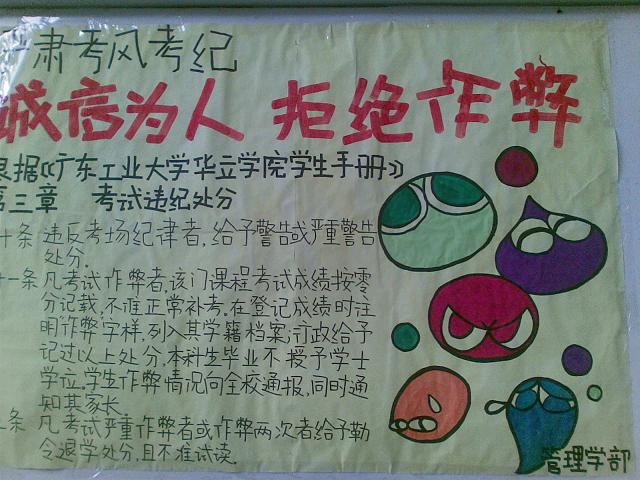 肃考风考纪
诚信为人 拒绝作弊
根据《广东工业大学华立学院学生手册》
第三章 考试违纪处分
十条 违反考场纪律者,给予警告或严重警告
处分.
十一条 凡考试作弊者,该门课程考试成绩按零
分记载,不准正常补考,在登记成绩时注
明作弊字样,列入其学籍档案;行政给予
记过以上处分,本科生毕业不授予学士
学位.学生作弊情况向全校通报,同时通
知其家长.
二条 凡考试严重作弊者或作弊两次者给予勒
令退学处分,且不准试读.
管理学部